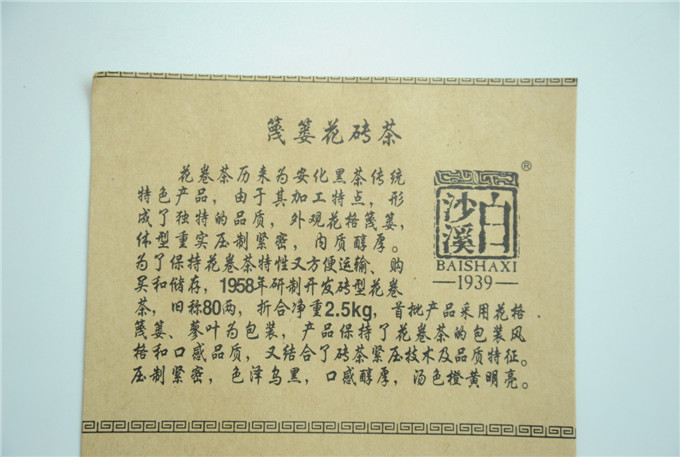 篾篓花砖茶
花卷茶历来为安化黑茶传统
特色产品，由于其加工特点，形
成了独特的品质，外观花格篾篓，
体型重实压制紧密，内质醇厚。
为了保持花卷茶特性又方便运输、购
买和储存，1958年研制开发砖型花卷
茶，旧称80两，折合净重2.5kg，首批产品采用花格
篾篓、蓼叶为包装，产品保持了花卷茶的包装风
格和口感品质，又结合了砖茶紧压技术及品质特征。
压制紧密，色泽乌黑，口感醇厚，汤色橙黄明亮。
®
白沙溪
BAISHAXI
1939